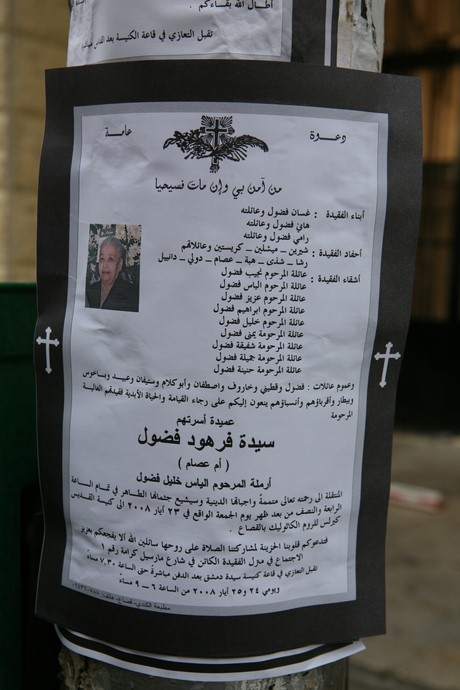 أطال الله بقاءكم
تقبل التعازي في قاعة الكنيسة بعد
دعوة عامة
من آمن بي وإن مات فسيحيا
أبناء الفقيدة : غسان فضول وعائلته
هاني فضول وعائلته
رامي فضول وعائلته
أحفاد الفقيدة : شيرين _ ميشلين _ كريستين وعائلاتهم
رشا _ شذى _ هبة _ عصام _ دولي _ دانييل
أشقاء الفقيدة : عائلة المرحوم نجيب فضول
عائلة المرحوم الياس فضول
عائلة المرحوم عزيز فضول
عائلة المرحوم ابراهيم فضول
عائلة المرحوم خليل فضول
عائلة المرحومة يمنى فضول
عائلة المرحومة شفيقة فضول
عائلة المرحومة جميلة فضول
عائلة المرحومة حنينة فضول
وعموم عائلات : فضول وقطيني وخاروف واصطفان وأبوكلام ومنيفان وعبيد وساخوس
وبيطار وأقرباؤهم وأنسباؤهم ينعون إليكم على رجاء القيامة والحياة الأبدية فقيدتهم الغالية
المرحومة
عميدة أسرتهم
سيدة فرهود فضول
( أم عصام )
أرملة المرحوم الياس خليل فضول
المنتقلة الى رحمته تعالى متممةً واجباتها الدينية وسيشيع جثمانها الطاهر في تمام الساعة
الرابعة والنصف من بعد ظهر يوم الجمعة الواقع في ٢٣ أيار ٢٠٠٨ الى كنيسة القديس
كيرلس للروم الكاثوليك بالقصاع .
فتدعوكم قلوبنا الحزينة لمشاركتنا الصلاة على روحها سائلين الله ألا يفجعكم بعزيز
الاجتماع في منزل الفقيدة الكائن في شارع مارسيل كرامة رقم ١
تقبل التعازي في قاعة كنيسة سيدة دمشق بعد الدفن مباشرة حتى الساعة ٧.٣٠ مساءً
ويومي ٢٤ و٢٥ أيار ٢٠٠٨ من الساعة ٦ _ ٩ مساءً
مطبعة الكندي، قصاع، هاتف: